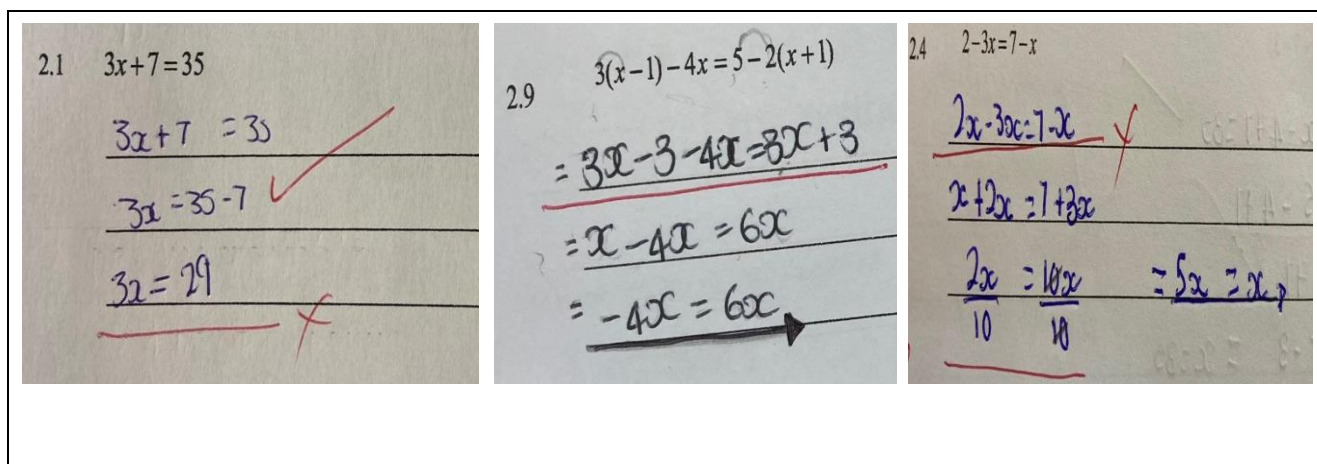 2.1 3x+7=35
3x+7 = 35
3x = 35-7
3x = 29
2.9 3(x-1)-4x=5-2(x+1)
= 3x-3-4x=3x+3
= x-4x = 6x
= -4x = 6x
2.4 2-3x=7-x
2x-3x=7-x
x+2x=7+3x
2x/10 = 10x/10 = 5x = x